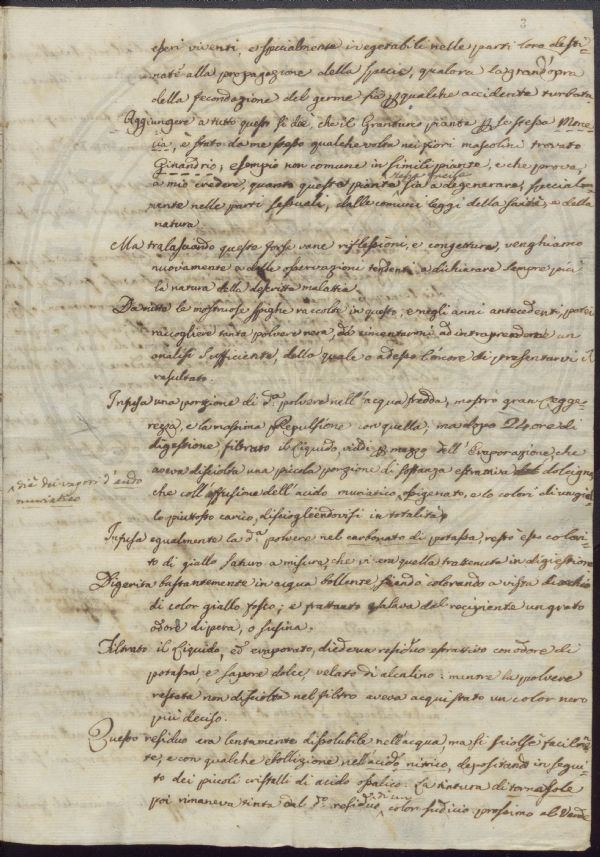 3
esseri viventi, e specialmente i vegetabili nelle parti loro desti-
nate alla propagazione della specie, qualora la grand'opra
della fecondazione del germe sia p qualche accidente turbata.
Aggiungere a tutto questo si dee, che il Granturco pianta p se stessa Mone-
cia, è stato da me stesso qualche volta nei fiori mascolini trovato
Ginandrio, esempio non comune in simili piante, e che prova,
a mio credere, quanto questa pianta sia a degenerare, special-
mente nelle parti sessuali, dalle comuni leggi della sanità, e della
natura.
Ma tralasciando queste forse vane riflessioni, e congetture, venghiamo
nuovamente a delle osservazioni tendenti a dichiarare sempre più
la natura della descritta malattia.
Da tutte le mostruose spighe raccolte in questo, e negli anni antecedenti, potei
raccogliere tanta polvere nera, da cimentarmi ad intraprendere un
analisi sufficiente, della quale o adesso l'onore di presentarvi il
resultato.
Infusa una porzione di da polvere nell'acqua fredda, mostrò gran legge-
rezza, e la massima Repulsione con quella; ma dopo 24 ore di
digestione filtrato il Liquido, viddi p mezzo dell'Evaporazione, che
aveva disciolta una piccola porzione di sostanza estrattiva dolcigna,
che coll'affusione dell'acido muriatico ossigenato, e lo colorì di un gial-
lo piuttosto carico, disciogliendovisi in totalità.
dei vapori d'acido
muriatico
Infusa egualmente la da polvere nel carbonato di potassa, restò esso colori-
to di giallo saturo a misura, che vi era quella trattenuta in digestione
Digerita bastantemente in acqua bollente, si andò colorando a vista
di color giallo fosco; e frattanto esalava dal recipiente un grato
odore di pera, o susina.
Filtrato il Liquido, ed evaporato, diede un residuo estrattivo con odore di
potassa, e sapore dolce, velato di alcalino: mentre la polvere
restata non disciolta nel filtro aveva acquistato un color nero
più deciso.
Questo residuo era lentamente dissolubile nell'acqua, ma si sciolse facilmen-
te, e con qualche ebollizione nell'acido nitrico, depositando in segui-
to dei piccoli cristalli di acido ossalico. La tintura di tornasole
poi rimaneva tinta dal do residuo, di un color sudicio prossimo al Verde